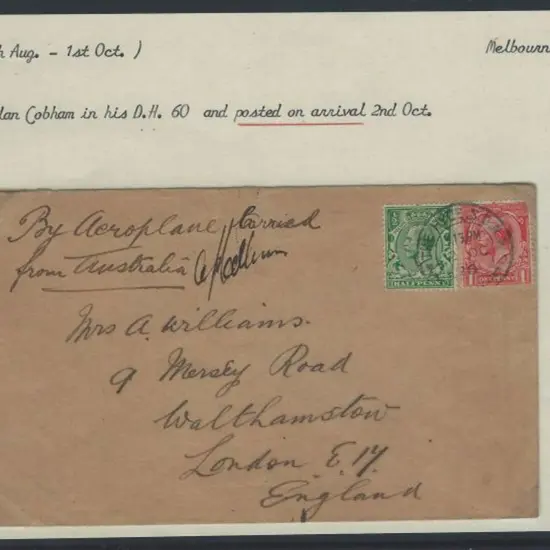 h Aug. - 1st Oct. )
Melbourn
lan Cobham in his D.H. 60 and posted on arrival 2nd Oct.
By Aeroplane, Carried
from Australia
Mrs A. Williams.
9 Mersey Road
Walthamstow
London E.17
England
HALFPENNY
1
1